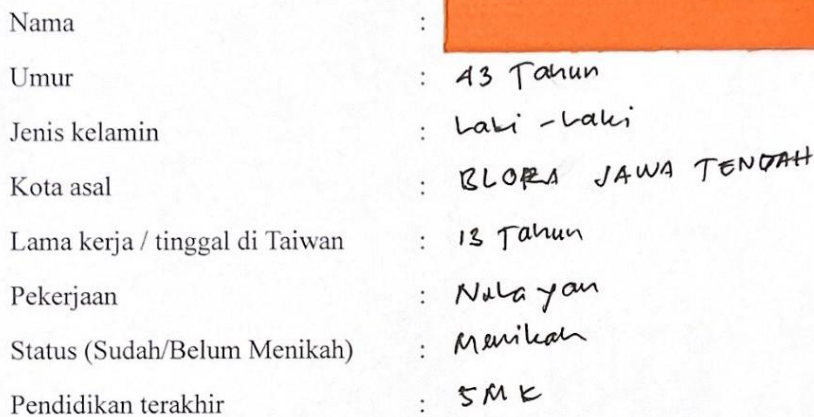 Nama :
Umur : 43 Tahun
Jenis kelamin : Laki - Laki
Kota asal : BLORA JAWA TENGAH
Lama kerja / tinggal di Taiwan : 13 Tahun
Pekerjaan : Nelayan
Status (Sudah/Belum Menikah) : Menikah
Pendidikan terakhir : SMK